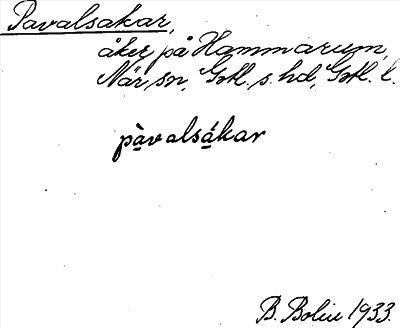 Pavalsakar,
åker på Hammarum,
När sn, Gotl. s. hd, Gotl. l.
pàvalsákar
B. Bolin 1933.